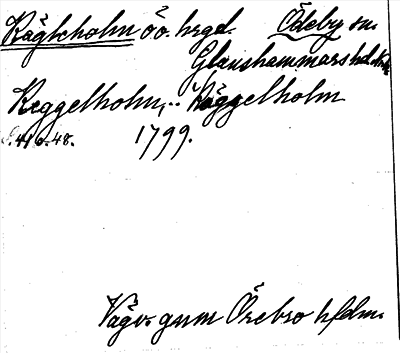 Käggleholm öo. hrgd. Ödeby sn.
Glanshammars hd.
Keggelholm, .. Käggelholm
s. 416. 48. 1799.
Vägv. gnm Örebro hfdm.